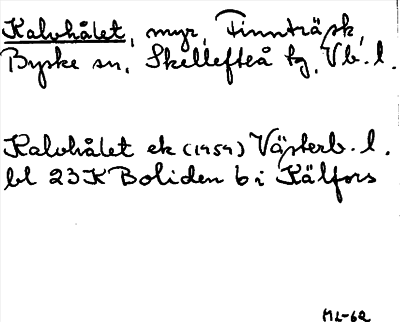 Kalvhålet, myr, Finnträsk,
Byske sn, Skellefteå tg, Vb. l.
Kalvhålet ek (1959) Västerb. l.
bl 23K Boliden 6 i Källfors
ML-62